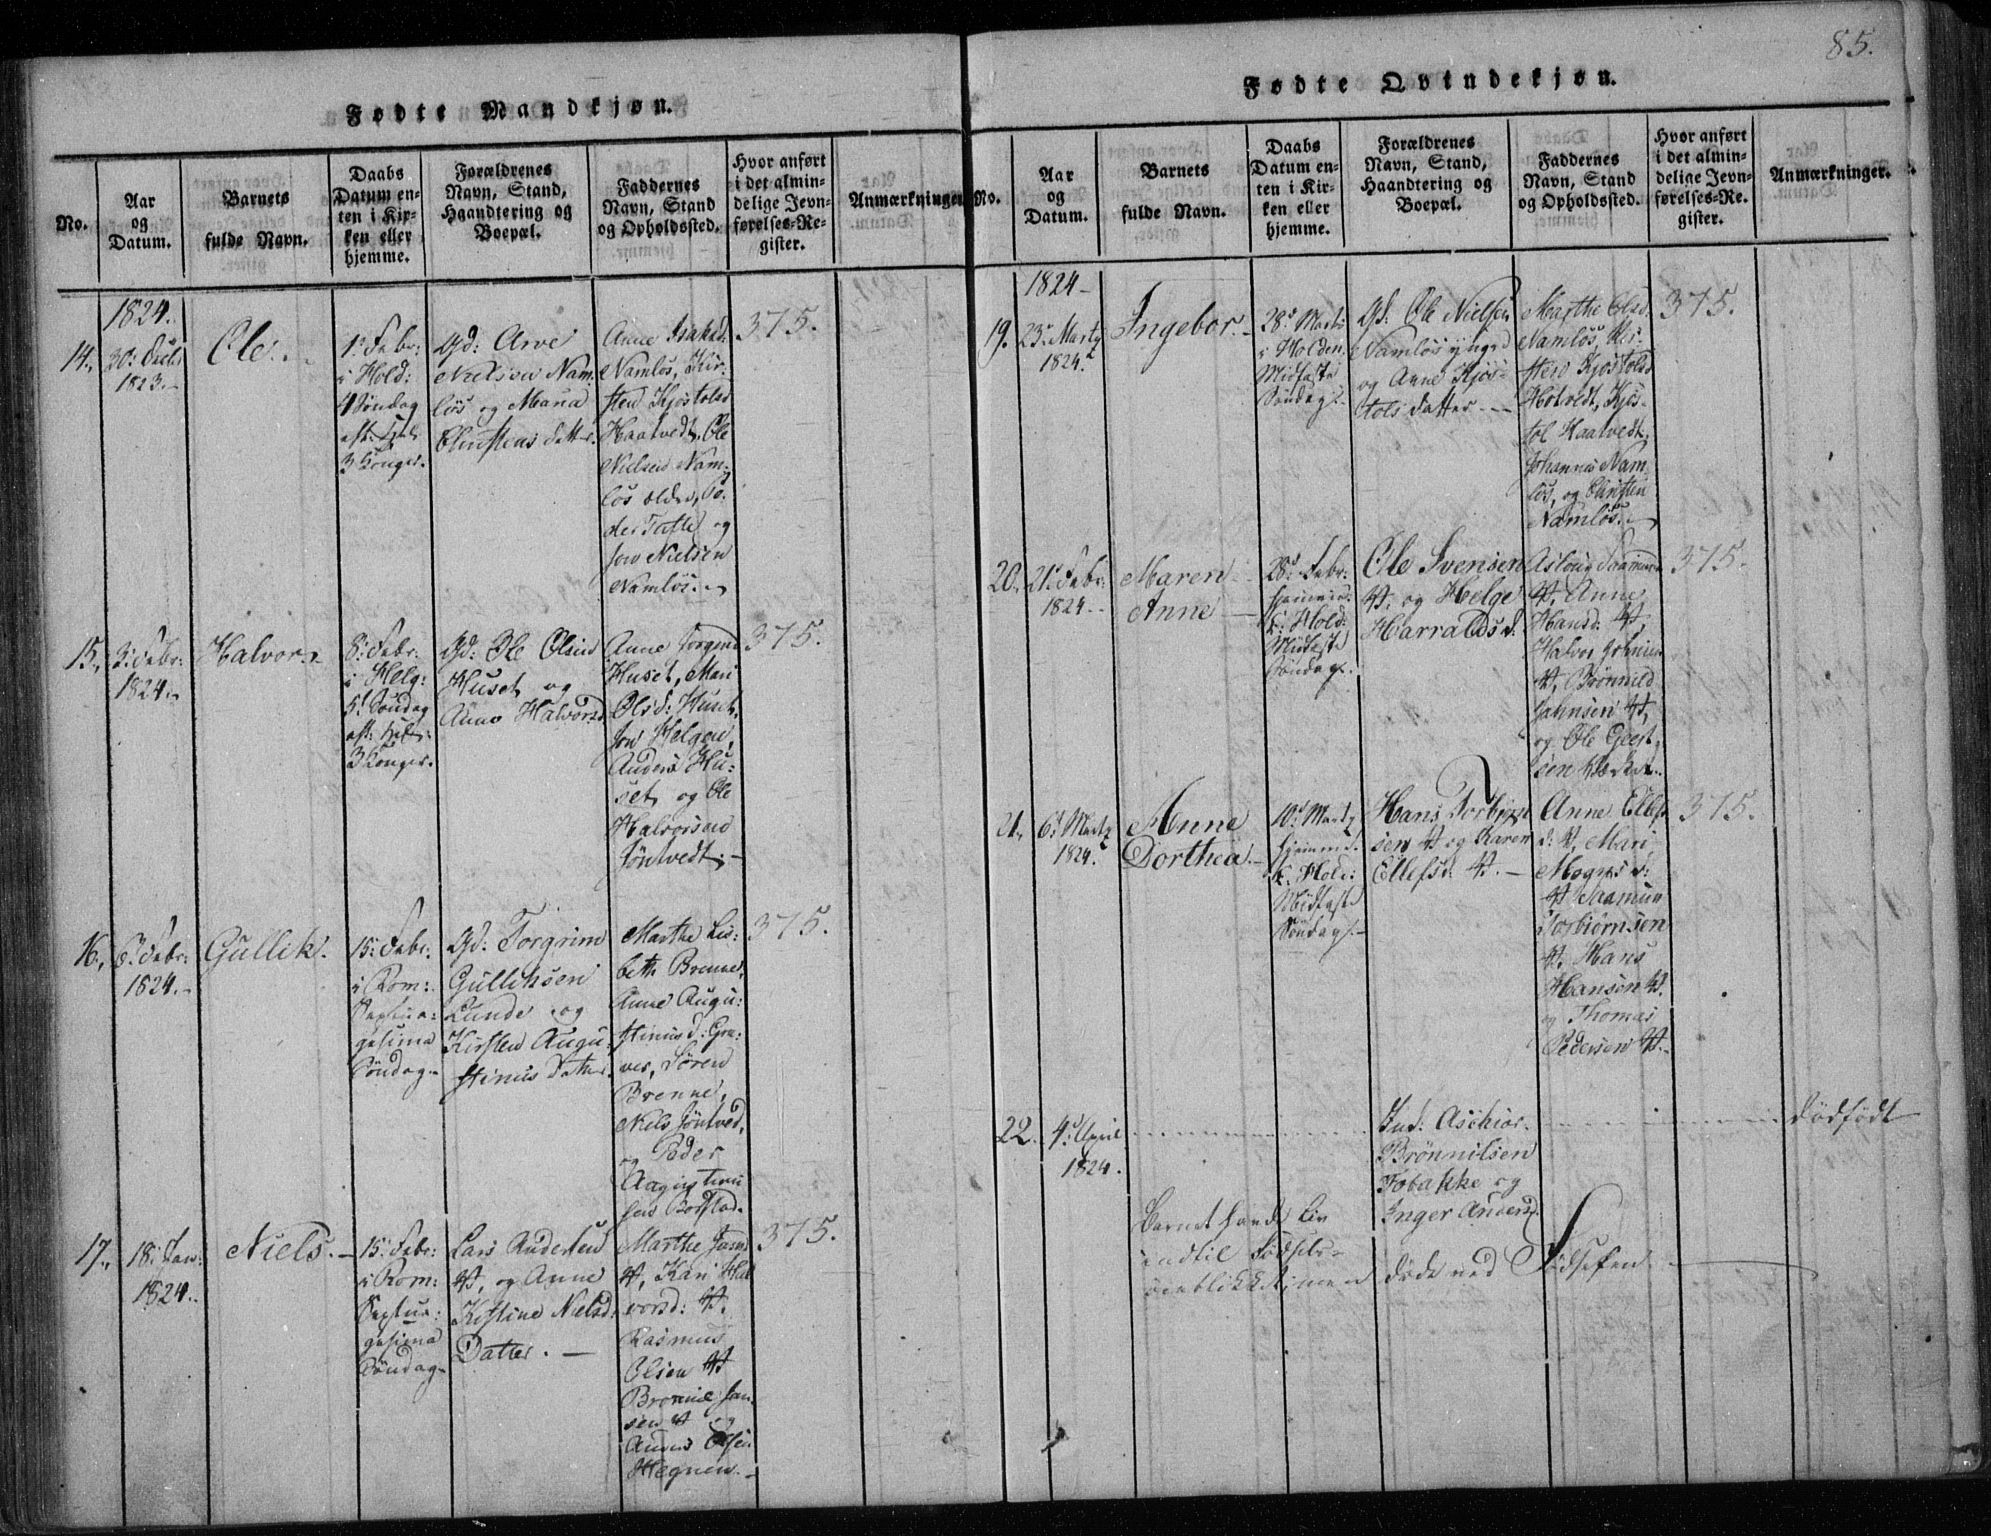 85.
Fødte Mandkjøn.
No.
Aar
og
Datum.
Barnets
fulde Navn.
Daabs
Datum en-
ten i Kir-
ken eller
hjemme.
Forældrenes
Navn, Stand,
Haandtering og
Boepæl.
Faddernes
Navn, Stand
og Opholdssted.
Hvor anført
i det almin-
delige Jevn-
førelses-Re-
gister.
Anmærkninger
1824.
14.
30: Decbr
1823.
Ole.
1: Febr:
i Hold:
4 Søndag
aft: Hel:
3 Konger.
Gd: Arve
Nielsen Nam-
løs og Maria
Christens Datter.
Anne Isaksd:
Namløs, Kir-
sten Kjøstolsd
Haatvedt, Ole
Nielsen Nam-
løs ældre, Pe-
der Tatte og
Jon Nielsen
Namløs.
375.
15.
3: Febr:
1824.
Halvor.
8: Febr:
i Helg:
5: Søndag
aft: Hel:
3 Konger.
Gd: Ole Olsen
Huset og
Anne Halvorsd
Anne Torgrimsd
Huset, Mari
Olsd: Huset,
Jon Helgen,
Anders Hu-
set og Ole
Halvorsen
Jøntvedt.
375.
16.
6: Febr:
1824.
Gullik.
15: Febr:
i Rom:
Septua-
gesima
Søndag
Gd: Torgrim
Gulliksen
Lunde og
Kirsten Augu-
stinus Datter.
Marthe Lis-
beth Brenne,
Anne Augu-
stinusd: Gra-
ver, Søren
Brenne,
Niels Jøntved,
og Peder
Augustinu
sen Borstad.
375.
17.
18: Jan:
1824.
Niels.
15: Febr:
i Rom:
Septua-
gesima
Søndag
Lars Andersen
#, og Anne
Kistine Nielsd:
Datter.
Marthe Jansd
#, Kari Hal
vorsd: #.
Rasmus
Olsen #
Brønnil Jan-
sen # og
Anders Olsen
Hegnen.
375.
Fødte Qvindekjøn.
No.
Aar
og
Datum.
Barnets
fulde Navn.
Daabs
Datum en-
ten i Kir-
ken eller
hjemme.
Forældrenes
Navn, Stand,
Haandtering og
Boepæl.
Faddernes
Navn, Stand
og Opholdssted.
Hvor anført
i det almin-
delige Jevn-
førelses-Re-
gister.
Anmærkninger.
1824
19.
23: Martz
1824.
Ingebor.
28: Marts
i Holden
Midfaste
Søndag.
Gd: Ole Nielsen
Namløs yngre
og Anne Kjøs-
tols Datter
Marthe Olsd
Namløs, Kir-
sten Kjøstolsd
Hotvedt, Kjøs-
tol Haatvedt,
Johannes Nam
løs, og Christen
Namløs.
375.
20.
21: Febr:
1824.
Maren
Anne
28: Febr:
hjemme.
k: Hold:
Midfaste
Søndag.
Ole Svensen
#. og Helge
Harraldsd.
Asloug Saamunsd
#, Anne
Hansd: #,
Halvor Johnsen
#, Brønnild
Jahnsen #,
og Ole Geert-
sen Værket.
375.
21.
6: Martz
1824.
Anne
Dorthea.
10: Martz
hjemme.
k: Hold:
Midfaste
Søndag.
Hans Torbjørn
sen # og Karen
Ellefsd: #.
Anne Ellefs
d: #, Mari
Mognsd:
# Saamun
Torbiørnsen
#, Hans
Hansen #.
og Thomas
Pedersen #.
375.
22.
4: April
1824.
Ind: Aschior
Brønnilsen
Tobakke og
Inger Andersd.
Dødfødt
Barnet havde Liv
indtil Fødsels-
øieblikket, men døde ved Fødselen.